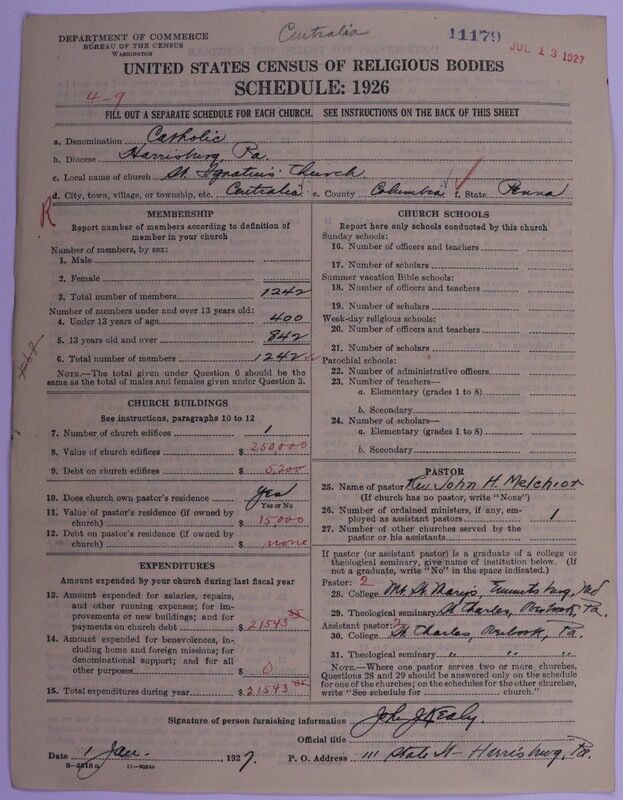 DEPARTMENT OF COMMERCE
BUREAU OF THE CENSUS
WASHINGTON
Centralia
11179
JUL 13 1927
UNITED STATES CENSUS OF RELIGIOUS BODIES
SCHEDULE: 1926
4-9
FILL OUT A SEPARATE SCHEDULE FOR EACH CHURCH. SEE INSTRUCTIONS ON THE BACK OF THIS SHEET
a. Denomination Catholic
b. Diocese Harrisburg, Pa.
c. Local name of church St. Ignatius' Church.
d. City, town, village, or township, etc. Centralia e. County Columbia f. State Penna
R
MEMBERSHIP
Report number of members according to definition of member in your church
Number of members, by sex:
1. Male
2. Female
3. Total number of members 1242
Number of members under and over 13 years old:
4. Under 13 years of age 400
5. 13 years old and over 842
6. Total number of members 1242
NOTE.—The total given under Question 6 should be the same as the total of males and females given under Question 3.
CHURCH BUILDINGS
See instructions, paragraphs 10 to 12
7. Number of church edifices 1
8. Value of church edifices $ 250,000
9. Debt on church edifices $ 5,200
10. Does church own pastor's residence yes
Yes or No
11. Value of pastor's residence (if owned by church) $ 15,000
12. Debt on pastor's residence (if owned by church) $ none
EXPENDITURES
Amount expended by your church during last fiscal year
13. Amount expended for salaries, repairs, and other running expenses; for improvements or new buildings; and for payments on church debt $ 21543 35
14. Amount expended for benevolences, including home and foreign missions; for denominational support; and for all other purposes $ 0
15. Total expenditures during year $ 21543 35
CHURCH SCHOOLS
Report here only schools conducted by this church
Sunday schools:
16. Number of officers and teachers
17. Number of scholars
Summer vacation Bible schools:
18. Number of officers and teachers
19. Number of scholars
Week-day religious schools:
20. Number of officers and teachers
21. Number of scholars
Parochial schools:
22. Number of administrative officers
23. Number of teachers—
a. Elementary (grades 1 to 8)
b. Secondary
24. Number of scholars—
a. Elementary (grades 1 to 8)
b. Secondary
PASTOR
25. Name of pastor Rev. John H. Melchior
(If church has no pastor, write "None")
26. Number of ordained ministers, if any, employed as assistant pastors 1
27. Number of other churches served by the pastor or his assistants
If pastor (or assistant pastor) is a graduate of a college or theological seminary, give name of institution below. (If not a graduate, write "No" in the space indicated.)
Pastor: 2
28. College Mt. St. Marys, Emmitsburg, Md
29. Theological seminary St. Charles, Overbrook, Pa.
Assistant pastor: 2
30. College St. Charles, Overbrook, Pa.
31. Theological seminary " " "
NOTE.—Where one pastor serves two or more churches, Questions 28 and 29 should be answered only on the schedule for one of the churches; on the schedules for the other churches, write "See schedule for church."
Signature of person furnishing information John J. Healy.
Official title
Date 1 Jan. , 1927. P. O. Address 111 State St Harrisburg, Pa.
8—5518 a 11—9384